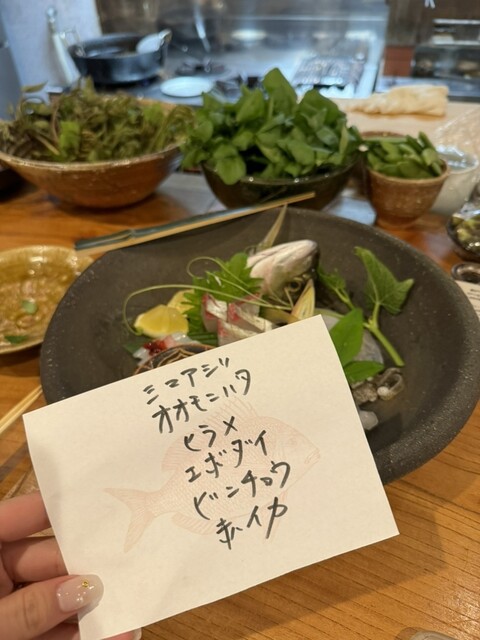 シマアジ
オオモンハタ
ヒラメ
エボダイ
ビンチョウ
赤イカ